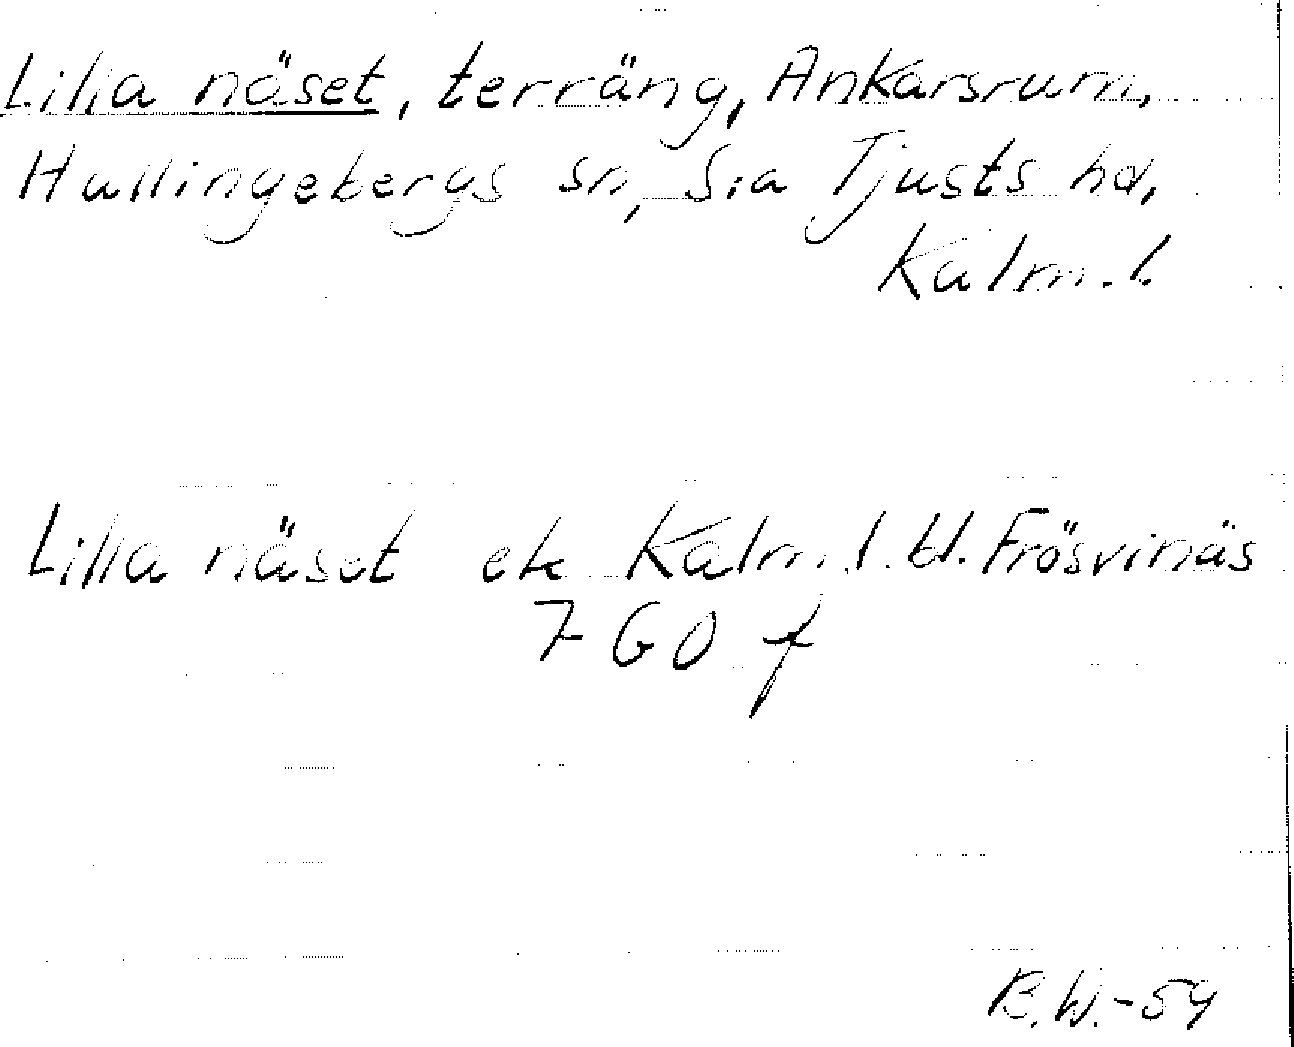 Lilla näset, terräng, Ankarsrum,
Hallingebergs sn, S:a Tjusts hd,
Kalm. l.
Lilla näset ek Kalm. l. bl. Frösvinäs
7 G O f
B.W.-59